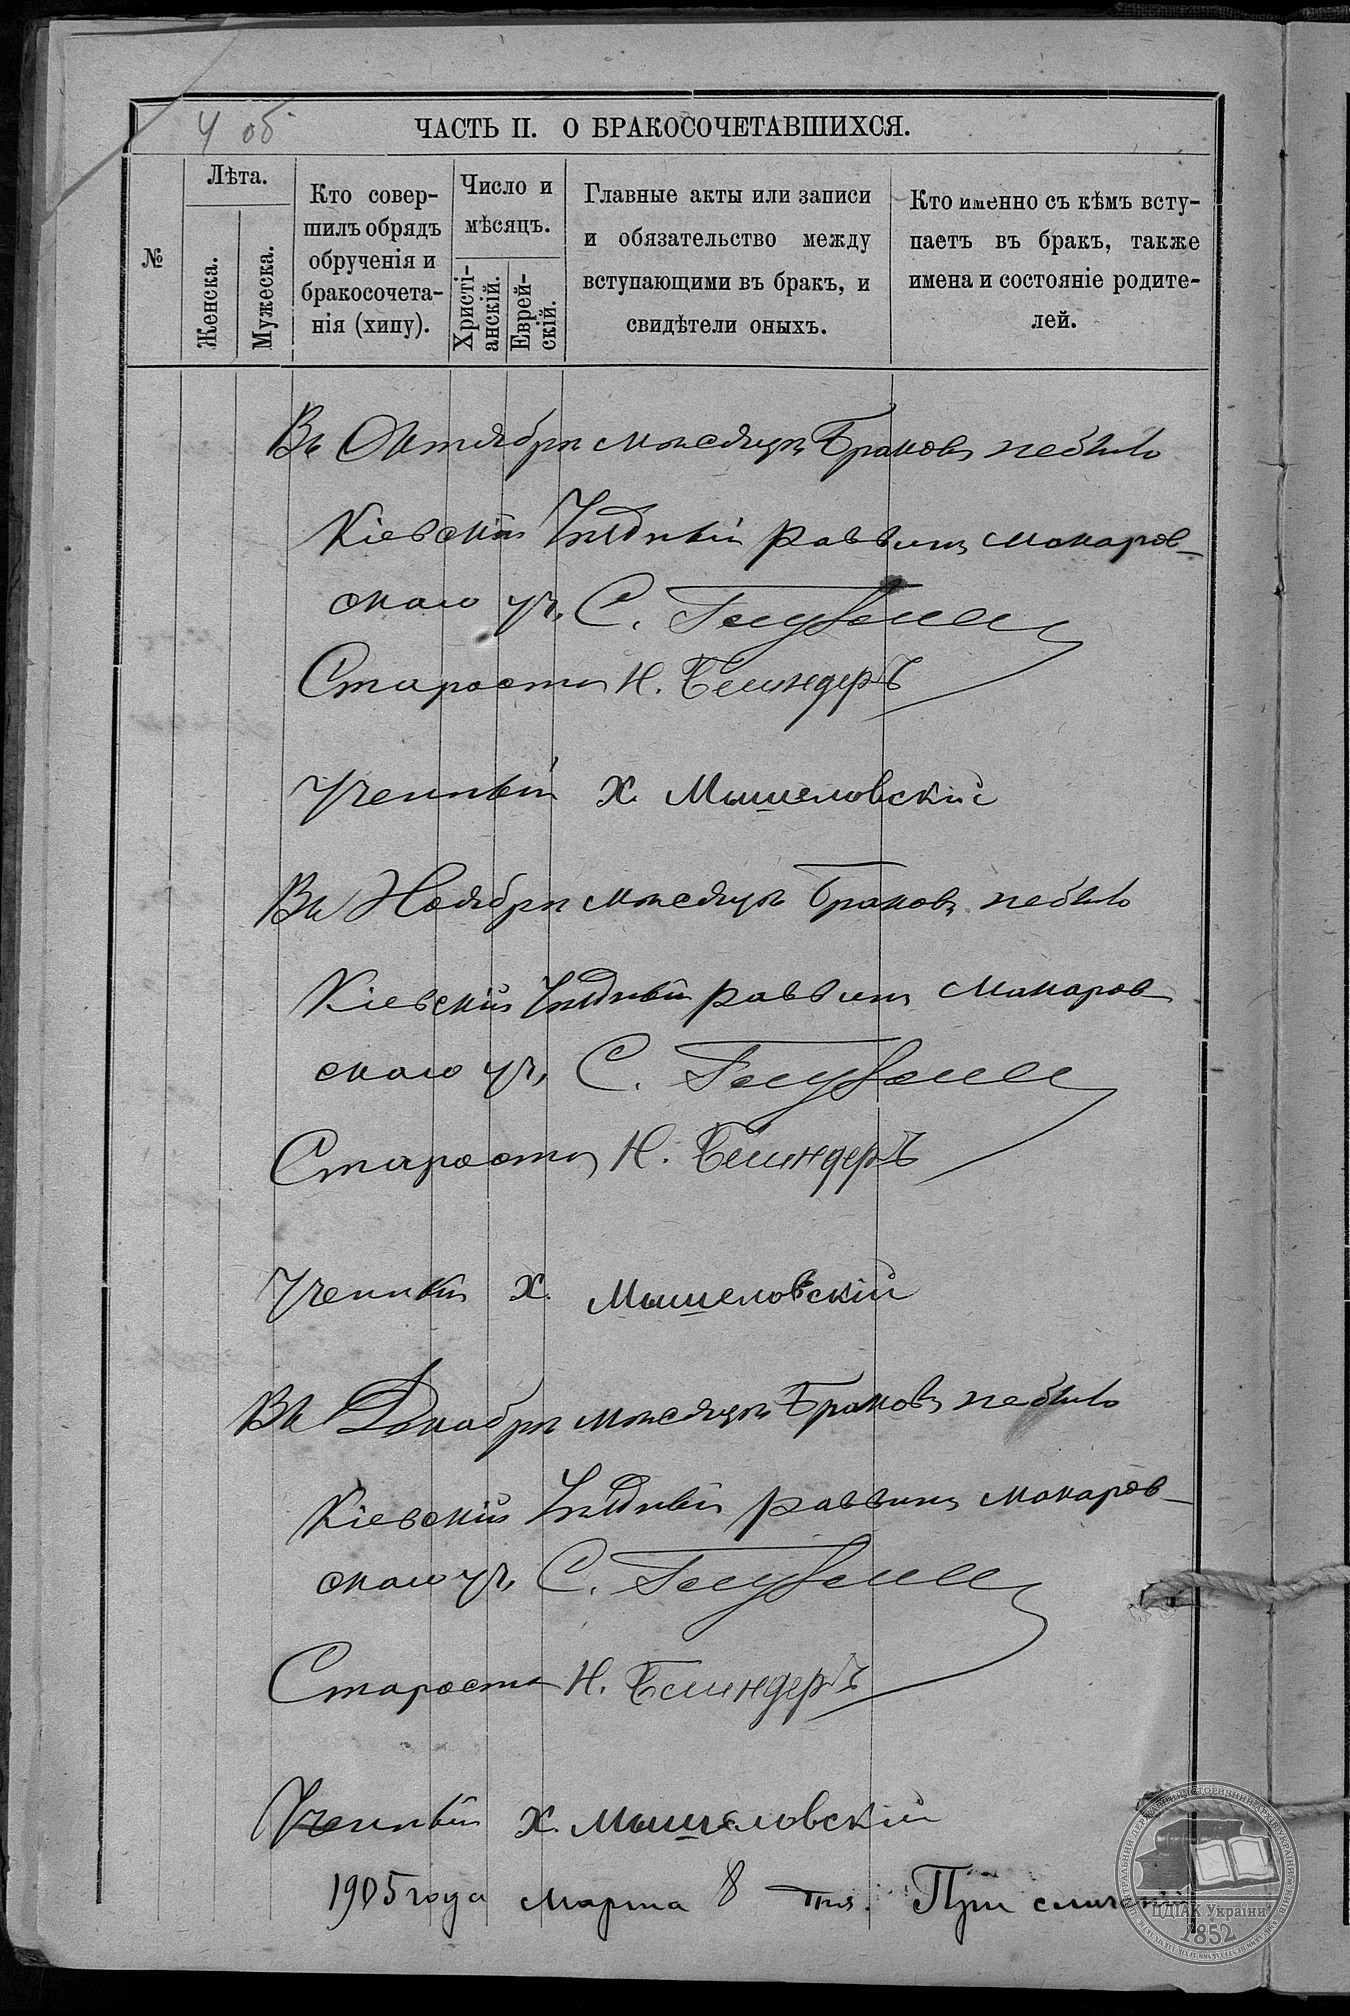 4 об
ЧАСТЬ II. О БРАКОСОЧЕТАВШИХСЯ.
№
Лѣта.
Женска.
Мужеска.
Кто совер-
шилъ обрядъ
обрученія и
бракосочета-
нія (хипу).
Число и
мѣсяцъ.
Христі-
анскій.
Еврей-
скій.
Главные акты или записи
и обязательство между
вступающими въ бракъ, и
свидѣтели оныхъ.
Кто именно съ кѣмъ всту-
паетъ въ бракъ, также
имена и состояніе родите-
лей.
Въ Октябрѣ мѣсяцѣ Браковъ небыло
Кіевскій Уѣздный раввинъ Макаров-
скаго уч. С.
Староста Н.
Ученный Х. Мышеловскій
Въ Ноябрѣ мѣсяцѣ Браковъ небыло
Кіевскій Уѣздный раввинъ Макаров-
скаго уч. С.
Староста Н.
Ученный Х. Мышеловскій
Въ Декабрѣ мѣсяцѣ Браковъ небыло
Кіевскій Уѣздный раввинъ Макаров-
скаго уч. С.
Староста Н.
Ученный Х. Мышеловскій
1905 года марта 8 дня. При сличеніи
ЦДІАК України
1852